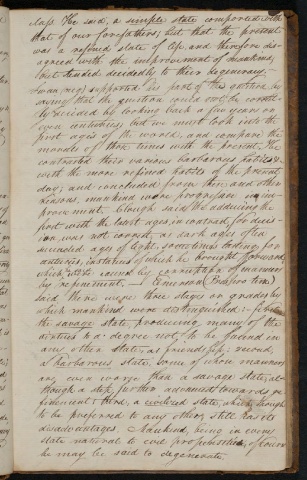 class. He said, a simple state comported with
that of our forefathers; but that the present
was a refined state of life, and therefore dis-
agreed with the improvement of mankind,
but tended decidedly to their degeneracy.
Swan (neg) supported his part of the question in
saying that the question could not be correct-
ly decided by looking back a few years or
even centuries; but we must look into the
first ages of the world, and compare the
morals of those times with the present. He
contrasted their various barbarous habits &c
with the more refined habits of the present
day; and concluded from them and other
reasons, mankind were progressive in im-
provement. Clough said the adducing the
past with the latest ages, in contrast, for decis-
ion, was not correct, as dark ages often
succeeded ages of light, sometimes looking for
authors, instances of which he brought forward,
which were caused by corruption of manners
by refinement. — Emerson (Professor)
said there were three stages or grades by
which mankind were distinguished: — first
the savage state, producing many of the
virtues to a degree not to be found in
any other state; as friendship; second,
a barbarous state, some of whose manners
are even worse than a savage state, al-
though a step further advanced towards re-
finement: third, a civilized state, which, though
to be preferred to any other, still has its
disadvantages. Mankind, being in every
state natural to evil propensities, of course
he may be said to degenerate